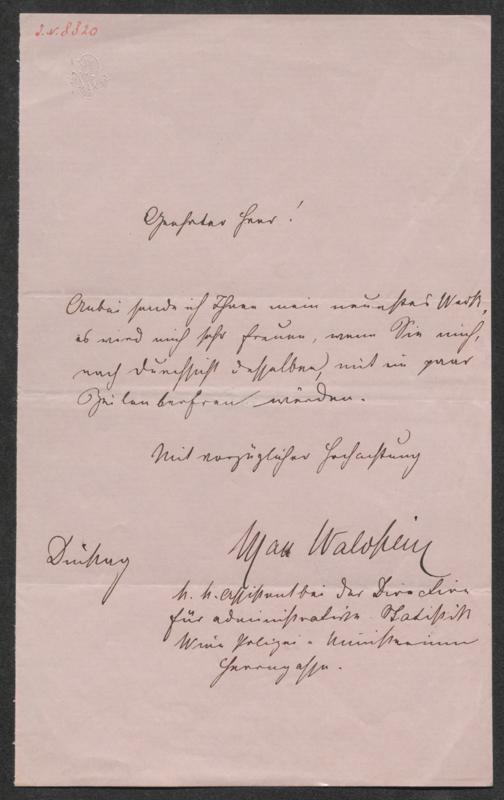 I.N. 8320
Geehrter Herr!
Anbei sende ich Ihnen mein neuestes Werk,
es wird mich sehr freuen, wenn Sie mich,
nach Durchsicht desselben, mit ein paar
Zeilen beehren würden.
Mit vorzüglicher Hochachtung
Max Waldstein
Dienstag
k. k. Assistent bei der Direction
für administrative Statistik
Wien Polizei-Ministerium
Herrngasse.